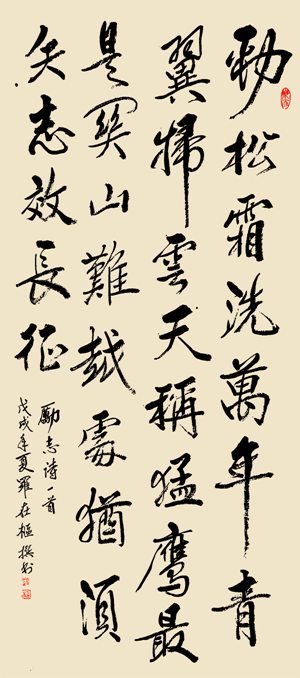 勁松霜洗萬年青
翼掃雲天稱猛鷹最
是關山難越處猶須
矢志效長征
勵志詩一首
戊戌年夏羅在樞撰书